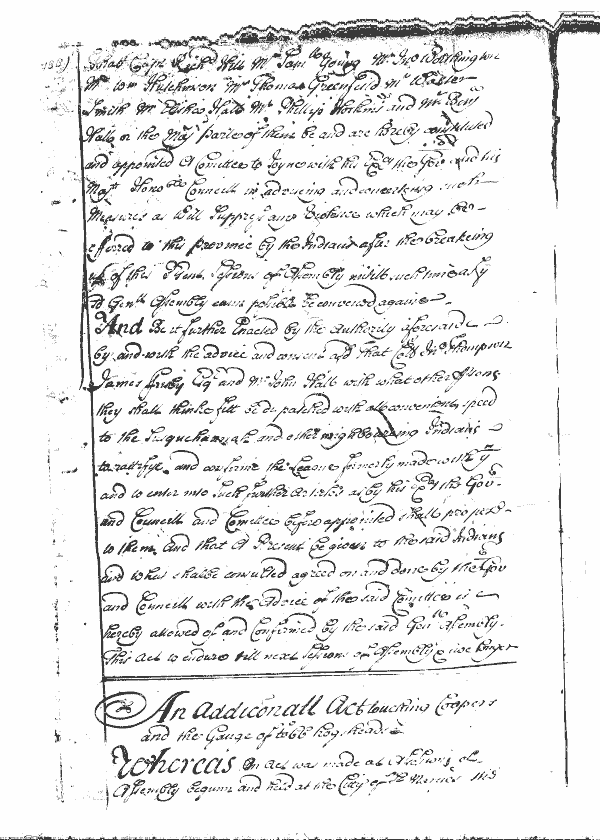 Capt Richd Hill Mr Saml Young Mr Jno Worthington
Mr Wm Hutchinson Mr Thomas Greenfield Mr Walter
Smith Mr Elishea Hall Mr Phillip Hoskins and Mr Benj
Hall or the Maj parte of them be and are hereby
and appointed A Comittee to Joyne with his Exy the Govr and his
Majts Honoble Councill in advising and concerting such
Measures as Will Suppress any Violence which may be
offered to this province by the Indians after the breaking
up of this Sessions of Assembly untill such time as ye
Genll Assembly can possible be convened againe
And Be it further Enacted by the Authority aforesaid
by and with the advice and consent afd That Coll Jno Thompson
James Esqr and Mr John Hall with what other
they shall think fitt be dispatched with all convenient speed
to the Susquehannah and other neighbouring Indians
to rattifye and confirme the League formerly made with ym
and to enter into such further Articles as by his Exy the Govr
and Councill and Comittee before appointed shall propose
to them and that A Present be given to the said Indians
and what shalbe consulted agreed on and done by the Govr
and Councill with the Advice of the said Comittee is
hereby allowed of and Confirmed by the said Genll Assembly.
This Act to endure till next Sessions of Assembly & noe longer
An Addiconall Act touching Coopers
and the Gauge of tobbo hogsheads
Whereas An Act was made at A Sessions of
Assembly begunn and held at the Citty of St Maries the